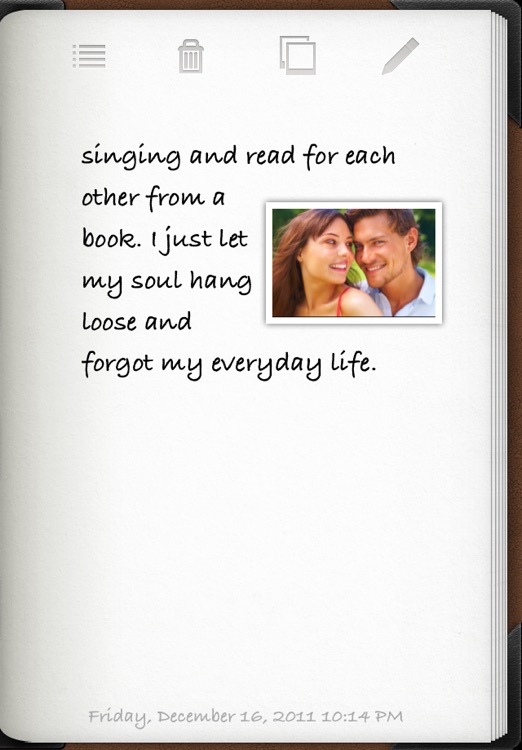 singing and read for each
other from a
book. I just let
my soul hang
loose and
forgot my everyday life.
Friday, December 16, 2011 10:14 PM